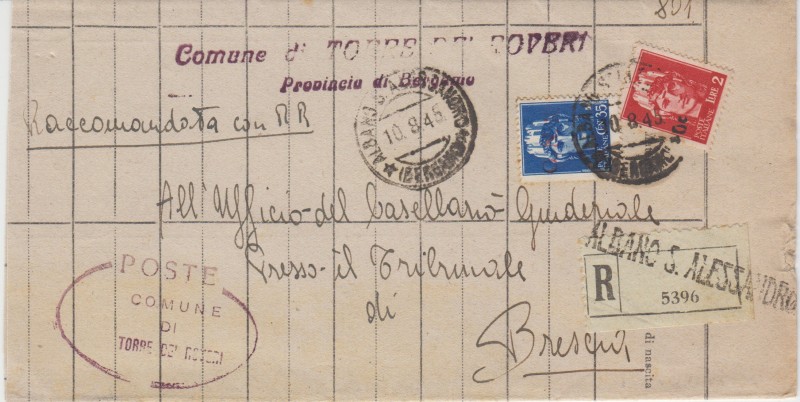 801
Comune di TORRE DE' ROVERI
Provincia di Bergamo
Raccomandata con RR
ALBANO S. ALESSANDRO
10.8.45
(BERGAMO)
CENT. 35
LIRE 2
POSTE ITALIANE
10.8.45
All'Ufficio del Casellario Giudiziale
Presso il Tribunale
di
Brescia
POSTE
COMUNE
DI
TORRE DE' ROVERI
ALBANO S. ALESSANDRO
R
5396
di nascita